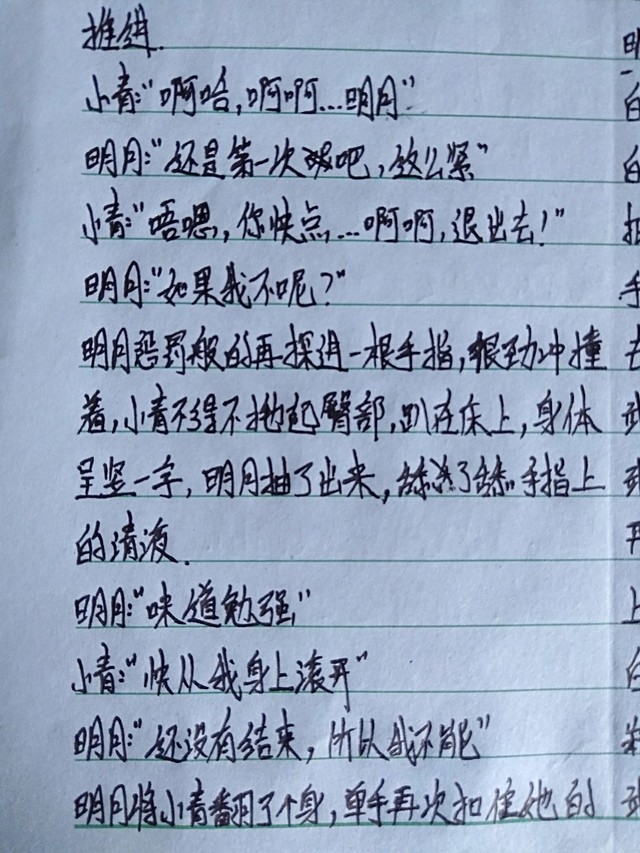 推进.
小青:“啊哈,啊啊...明月”
明月:“还是第一次破吧,这么紧”
小青:“唔嗯,你快点...啊啊,退出去!”
明月:“如果我不呢?”
明月惩罚般的再探进一根手指,狠劲冲撞
着,小青不得不抱起臀部,趴在床上,身体
呈竖一字,明月抽了出来,舔了舔手指上
的清液.
明月:“味道勉强”
小青:“快从我身上滚开”
明月:“还没有结束,所以我不能”
明月将小青翻了个身,单手再次扣住她的